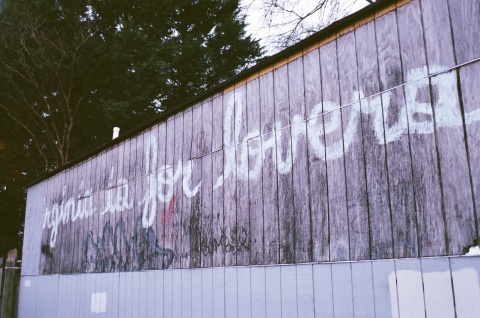 rginia is for lovers